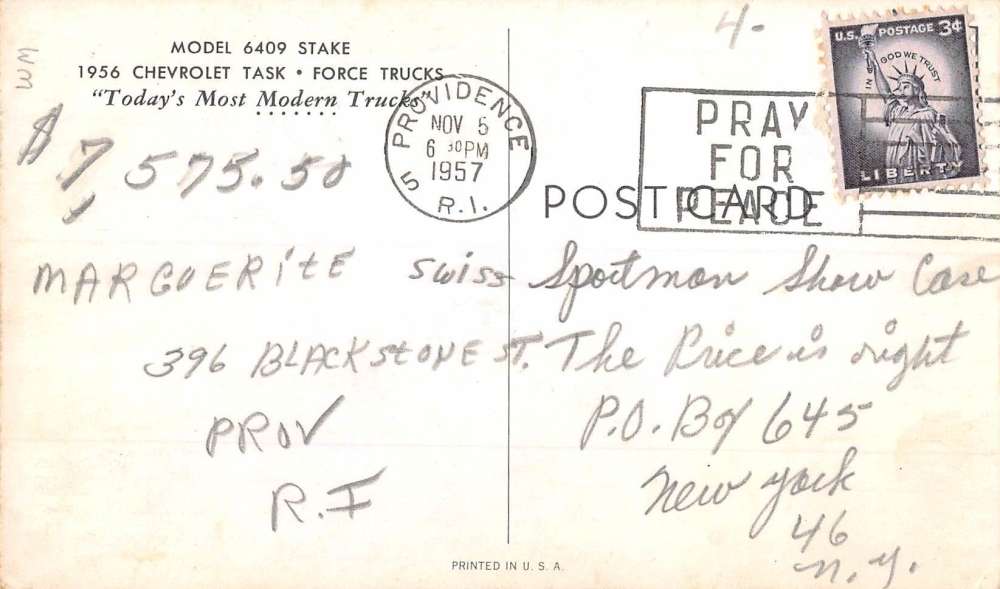 WM
MODEL 6409 STAKE
1956 CHEVROLET TASK • FORCE TRUCKS
"Today's Most Modern Trucks"
$7,575.50
MARGUERitE SWiSS
396 BLACKStONE ST.
PROV
R.I
PROVIDENCE
NOV 5
6 30 PM
1957
5
R.I.
4-
PRAY
FOR
PEACE
U.S. POSTAGE 3¢
IN GOD WE TRUST
LIBERTY
POST CARD
Sportman Show Case
The Price is right
P.O. Box 645
New York
46
N.Y.
PRINTED IN U. S. A.